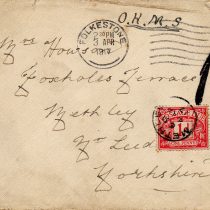 O.H.M.S
FOLKESTONE
3 APR
Mrs Howard
Foxholes Terrace
Methley
Nr Leeds
Yorkshire